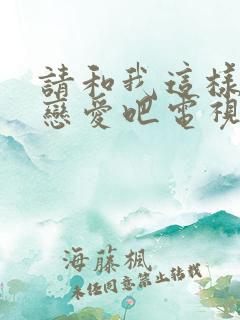 請和我這樣
戀愛吧電視
海藤楓
未任同意禁止轉載